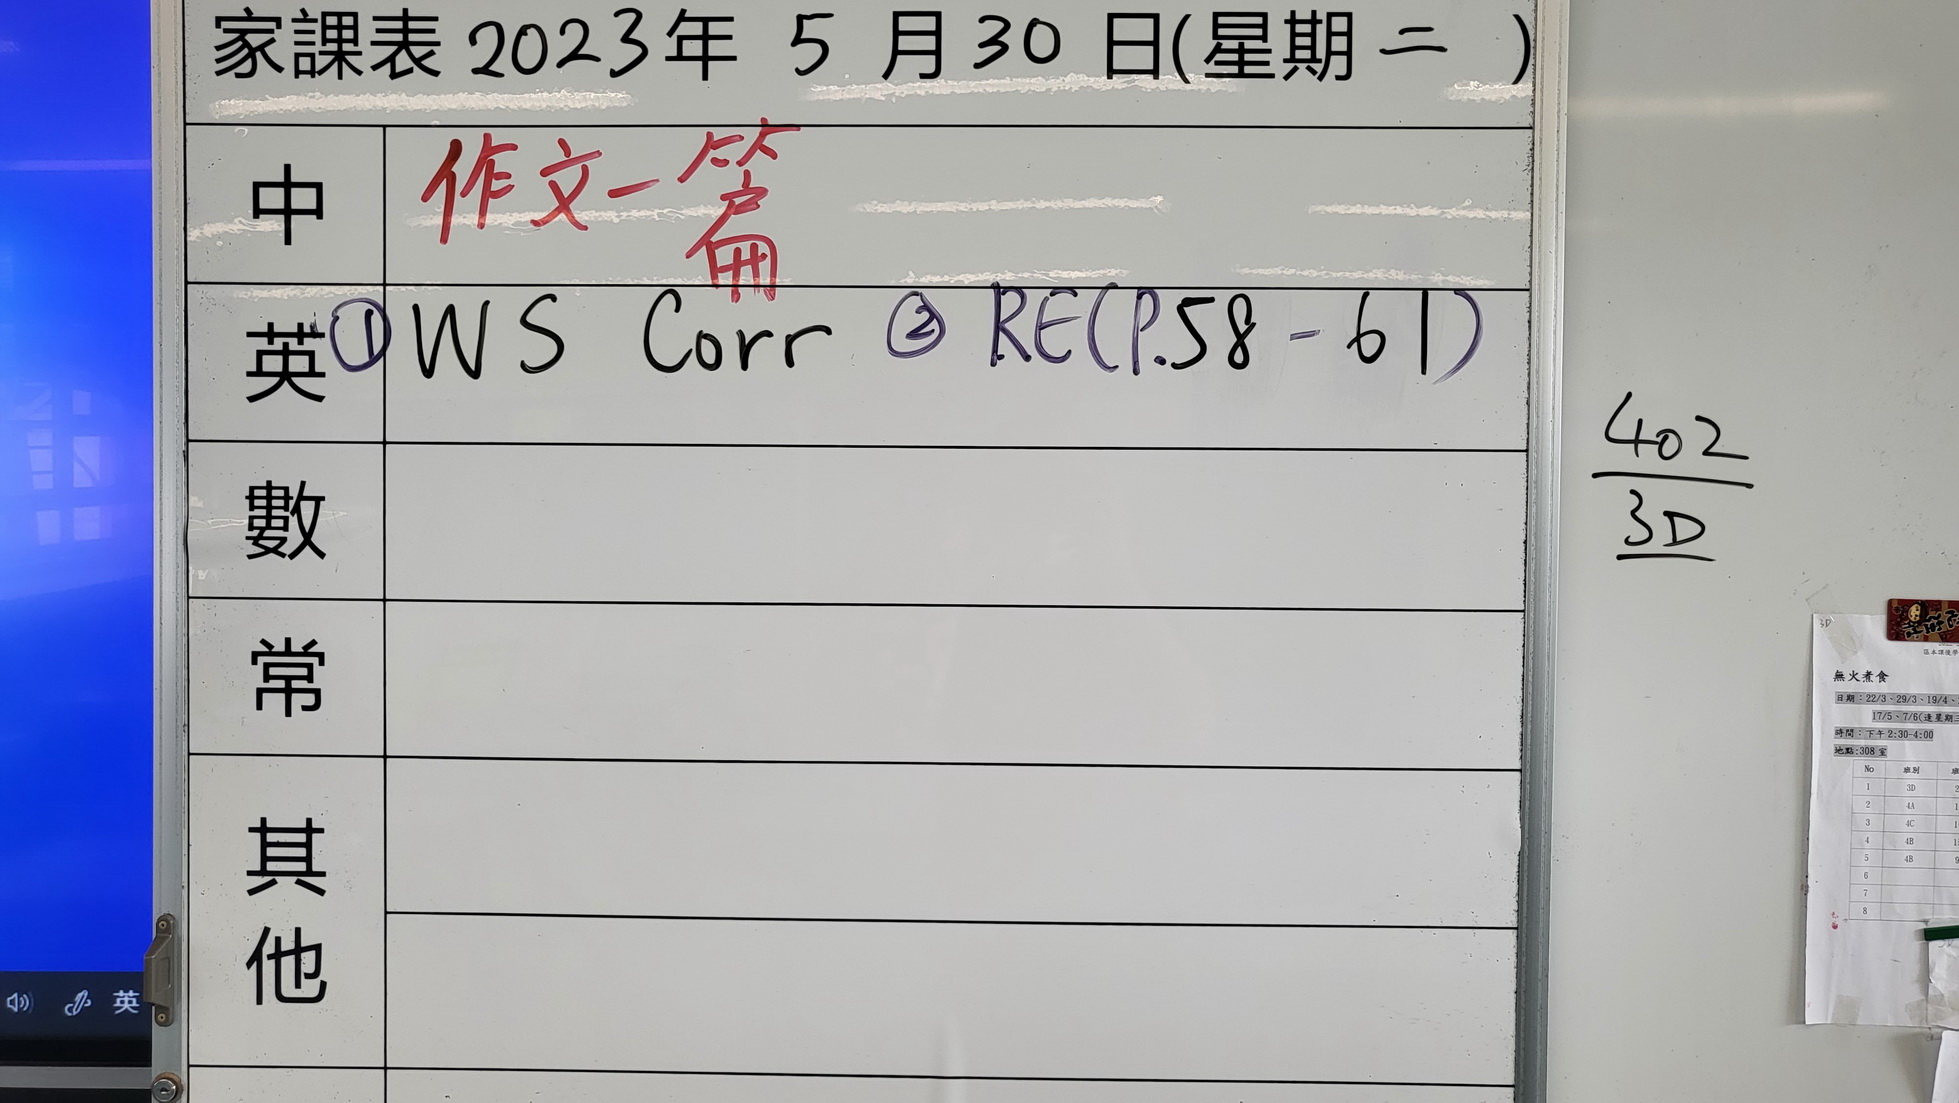 家課表 2023年 5 月 30 日(星期二 )
中 作文一篇
英 ① WS Corr ② RE(P.58-61)
數
常
其他
402
3D
英
3D
無火煮食
日期：22/3、29/3、19/4、
17/5、7/6(逢星期三
時間：下午 2:30-4:00
地點:308 室
No 班別
1 3D
2 4A
3 4C
4 4B
5 4B 9
6
7
8